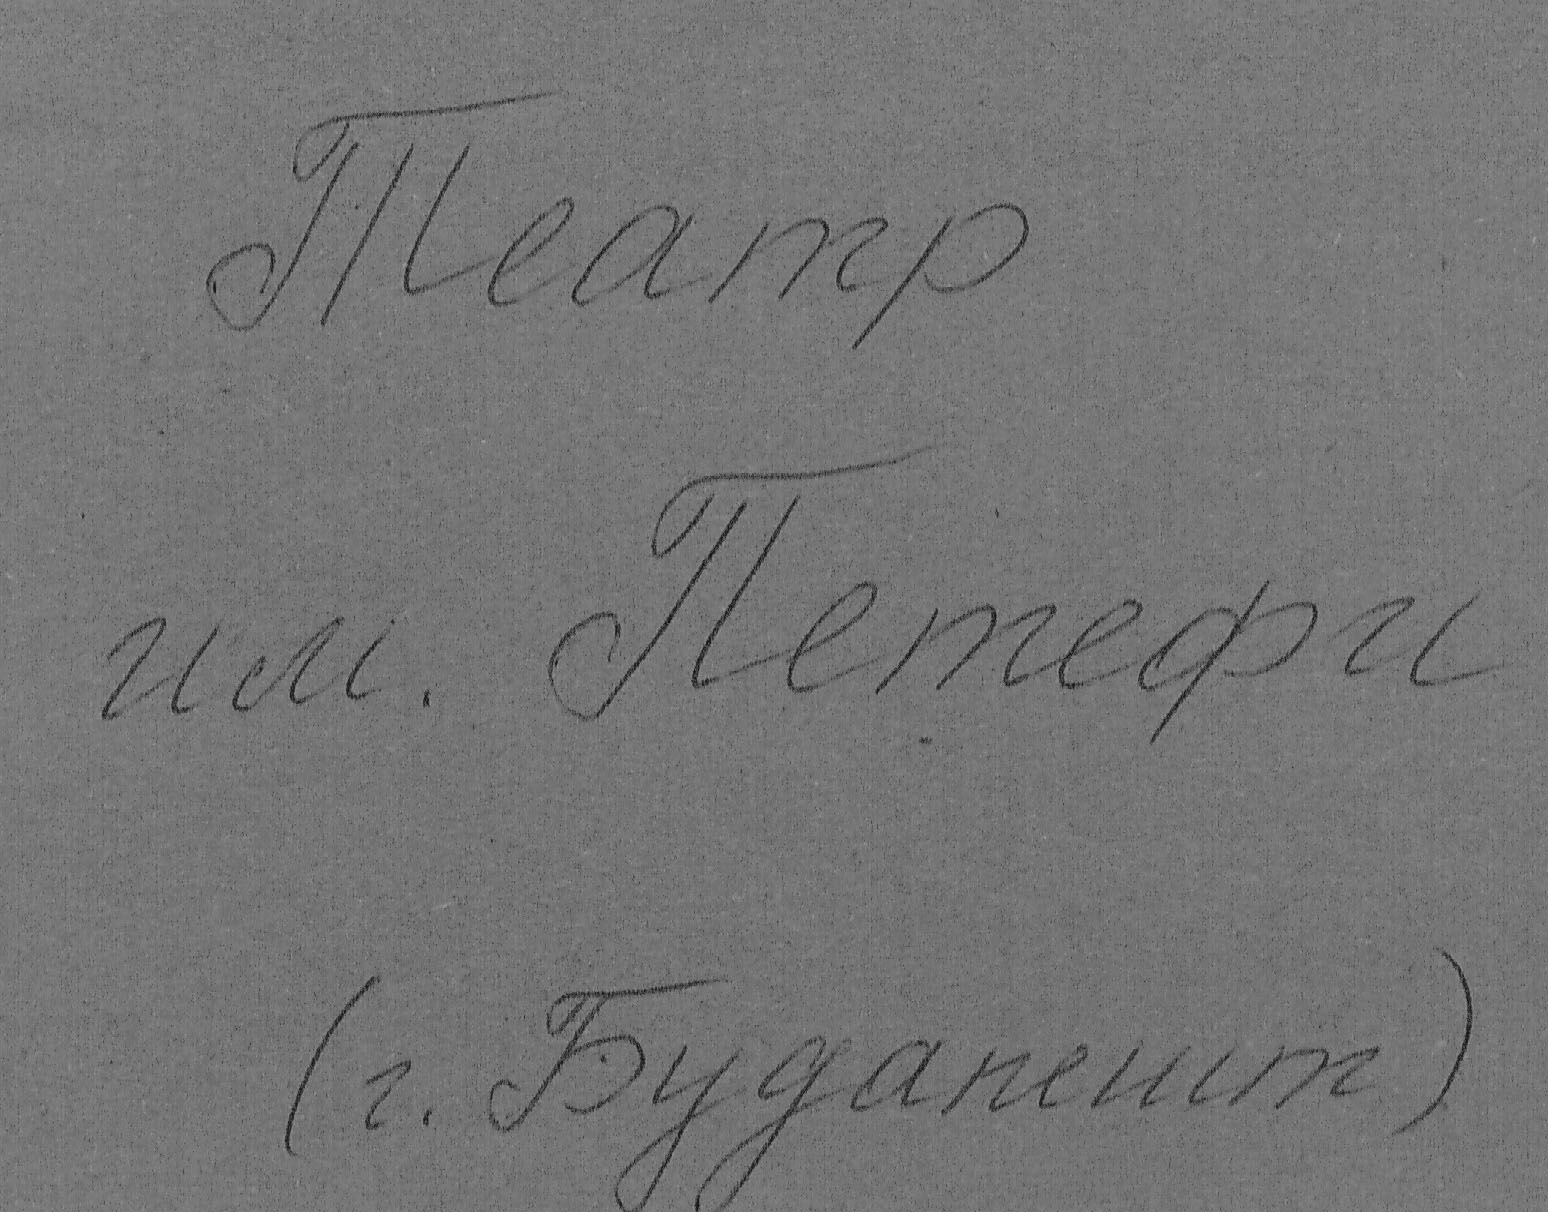 Театр
им. Петефи
(г. Будапешт)